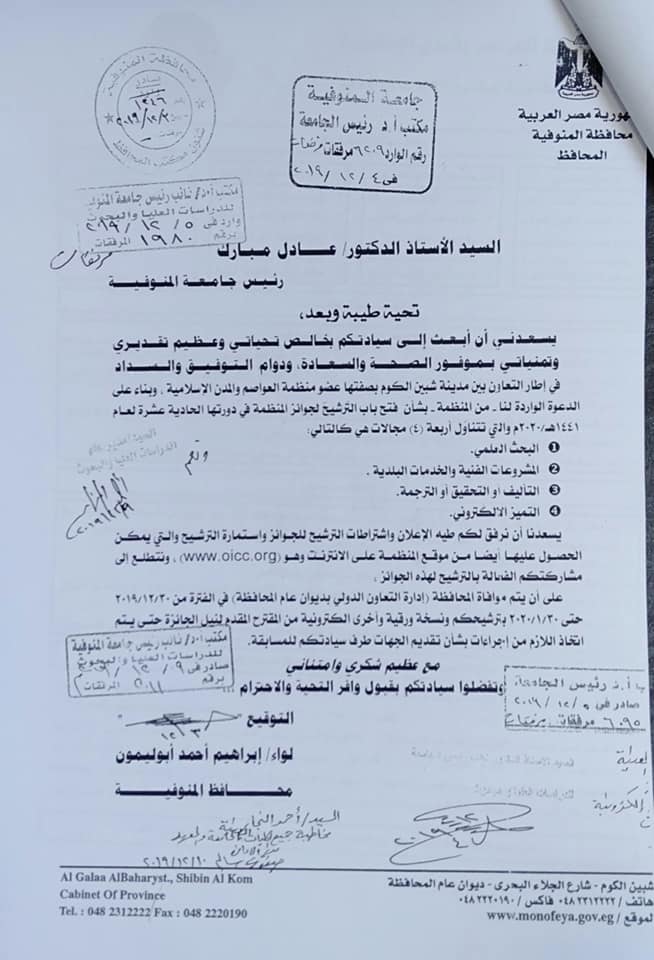 جمهورية مصر العربية
محافظة المنوفية
المحافظ
محافظة المنوفية
صادر
١٢٤٦
٢٠١٩/١٢/
مرفقات
شئون مكتب المحافظ
جامعة المنوفية
مكتب أ.د رئيس الجامعة
رقم الوارد ٦٢٠٩ مرفقات
فى ٤ / ١٢ / ٢٠١٩
مكتب أ.د/ نائب رئيس جامعة المنوفية
للدراسات العليا والبحوث
وارد فى ٥ / ١٢ / ٢٠١٩
برقم ١٩٨٠ المرفقات
مرفقات
السيد الأستاذ الدكتور/ عادل مبارك
رئيس جامعة المنوفية
تحية طيبة وبعد،
يسعدني أن أبعث إلى سيادتكم بخالص تحياتي وعظيم تقديري
وتمنياتي بموفور الصحة والسعادة، ودوام التوفيق والسداد
في إطار التعاون بين مدينة شبين الكوم بصفتها عضو منظمة العواصم والمدن الإسلامية ، وبناء على
الدعوة الواردة لنا - من المنظمة - بشأن فتح باب الترشيح لجوائز المنظمة في دورتها الحادية عشرة لعام
١٤٤١هـ/٢٠٢٠م والتي تتناول أربعة (٤) مجالات هي كالتالي:
❶ البحث العلمي.
❷ المشروعات الفنية والخدمات البلدية .
❸ التأليف أو التحقيق أو الترجمة.
❹ التميز الالكتروني.
السيد أمين عام
الدراسات العليا والبحوث
يسعدنا أن نرفق لكم طيه الإعلان واشتراطات الترشيح للجوائز واستمارة الترشيح والتي يمكن
الحصول عليها أيضا من موقع المنظمة على الانترنت وهو (www.oicc.org) ، ونتطلع إلى
مشاركتكم الفعالة بالترشيح لهذه الجوائز ،
على أن يتم موافاة المحافظة (إدارة التعاون الدولي بديوان عام المحافظة) في الفترة من ٢٠١٩/١٢/٣٠
حتى ٢٠٢٠/١/٣٠ بترشيحكم ونسخة ورقية وأخرى الكترونية من المقترح المقدم لنيل الجائزة حتى يتم
اتخاذ اللازم من إجراءات بشأن تقديم الجهات طرف سيادتكم للمسابقة.
مع عظيم شكري وامتناني
وتفضلوا سيادتكم بقبول وافر التحية والاحترام ...
مكتب أ.د/ نائب رئيس جامعة المنوفية
للدراسات العليا والبحوث
صادر فى ٩ / ١٢ /
برقم ٢٠١١ المرفقات
أ.د رئيس الجامعة
صادر فى ٥ / ١٢ / ٢٠١٩
٦٠٩٥ مرفقات
التوقيع
١٢/٣
لواء/ إبراهيم أحمد أبوليمون
محافظ المنوفية
السيد/ أحمد
٢٠١٩/١٢/١٠
Al Galaa AlBaharyst., Shibin Al Kom
Cabinet Of Province
Tel. : 048 2312222 Fax : 048 2220190
شبين الكوم - شارع الجلاء البحرى - ديوان عام المحافظة
هاتف / ٠٤٨٢٣١٢٢٢٢ فاكس / ٠٤٨٢٢٢٠١٩٠
الموقع / www.monofeya.gov.eg